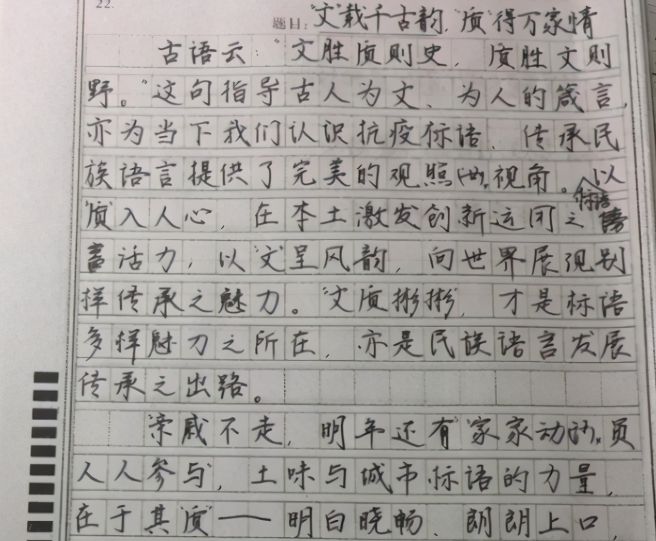 22.
题目：“文”载千古韵，“质”得万家情
古语云：“文胜质则史，质胜文则
野。”这句指导古人为文、为人的箴言，
亦为当下我们认识抗疫标语、传承民
族语言提供了完美的观照视角。以
“质”入人心，在本土激发创新运用之标语
活力，以“文”呈风韵，向世界展现别
样传承之魅力。“文质彬彬”，才是标语
多样魅力之所在，亦是民族语言发展
传承之出路。
亲戚不走，明年还有”家家动员
人人参与，土味与城市标语的力量，
在于其“质”——明白晓畅、朗朗上口，